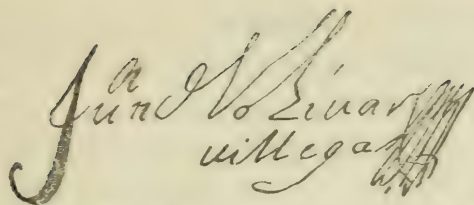 Juan d Volivar
villegas